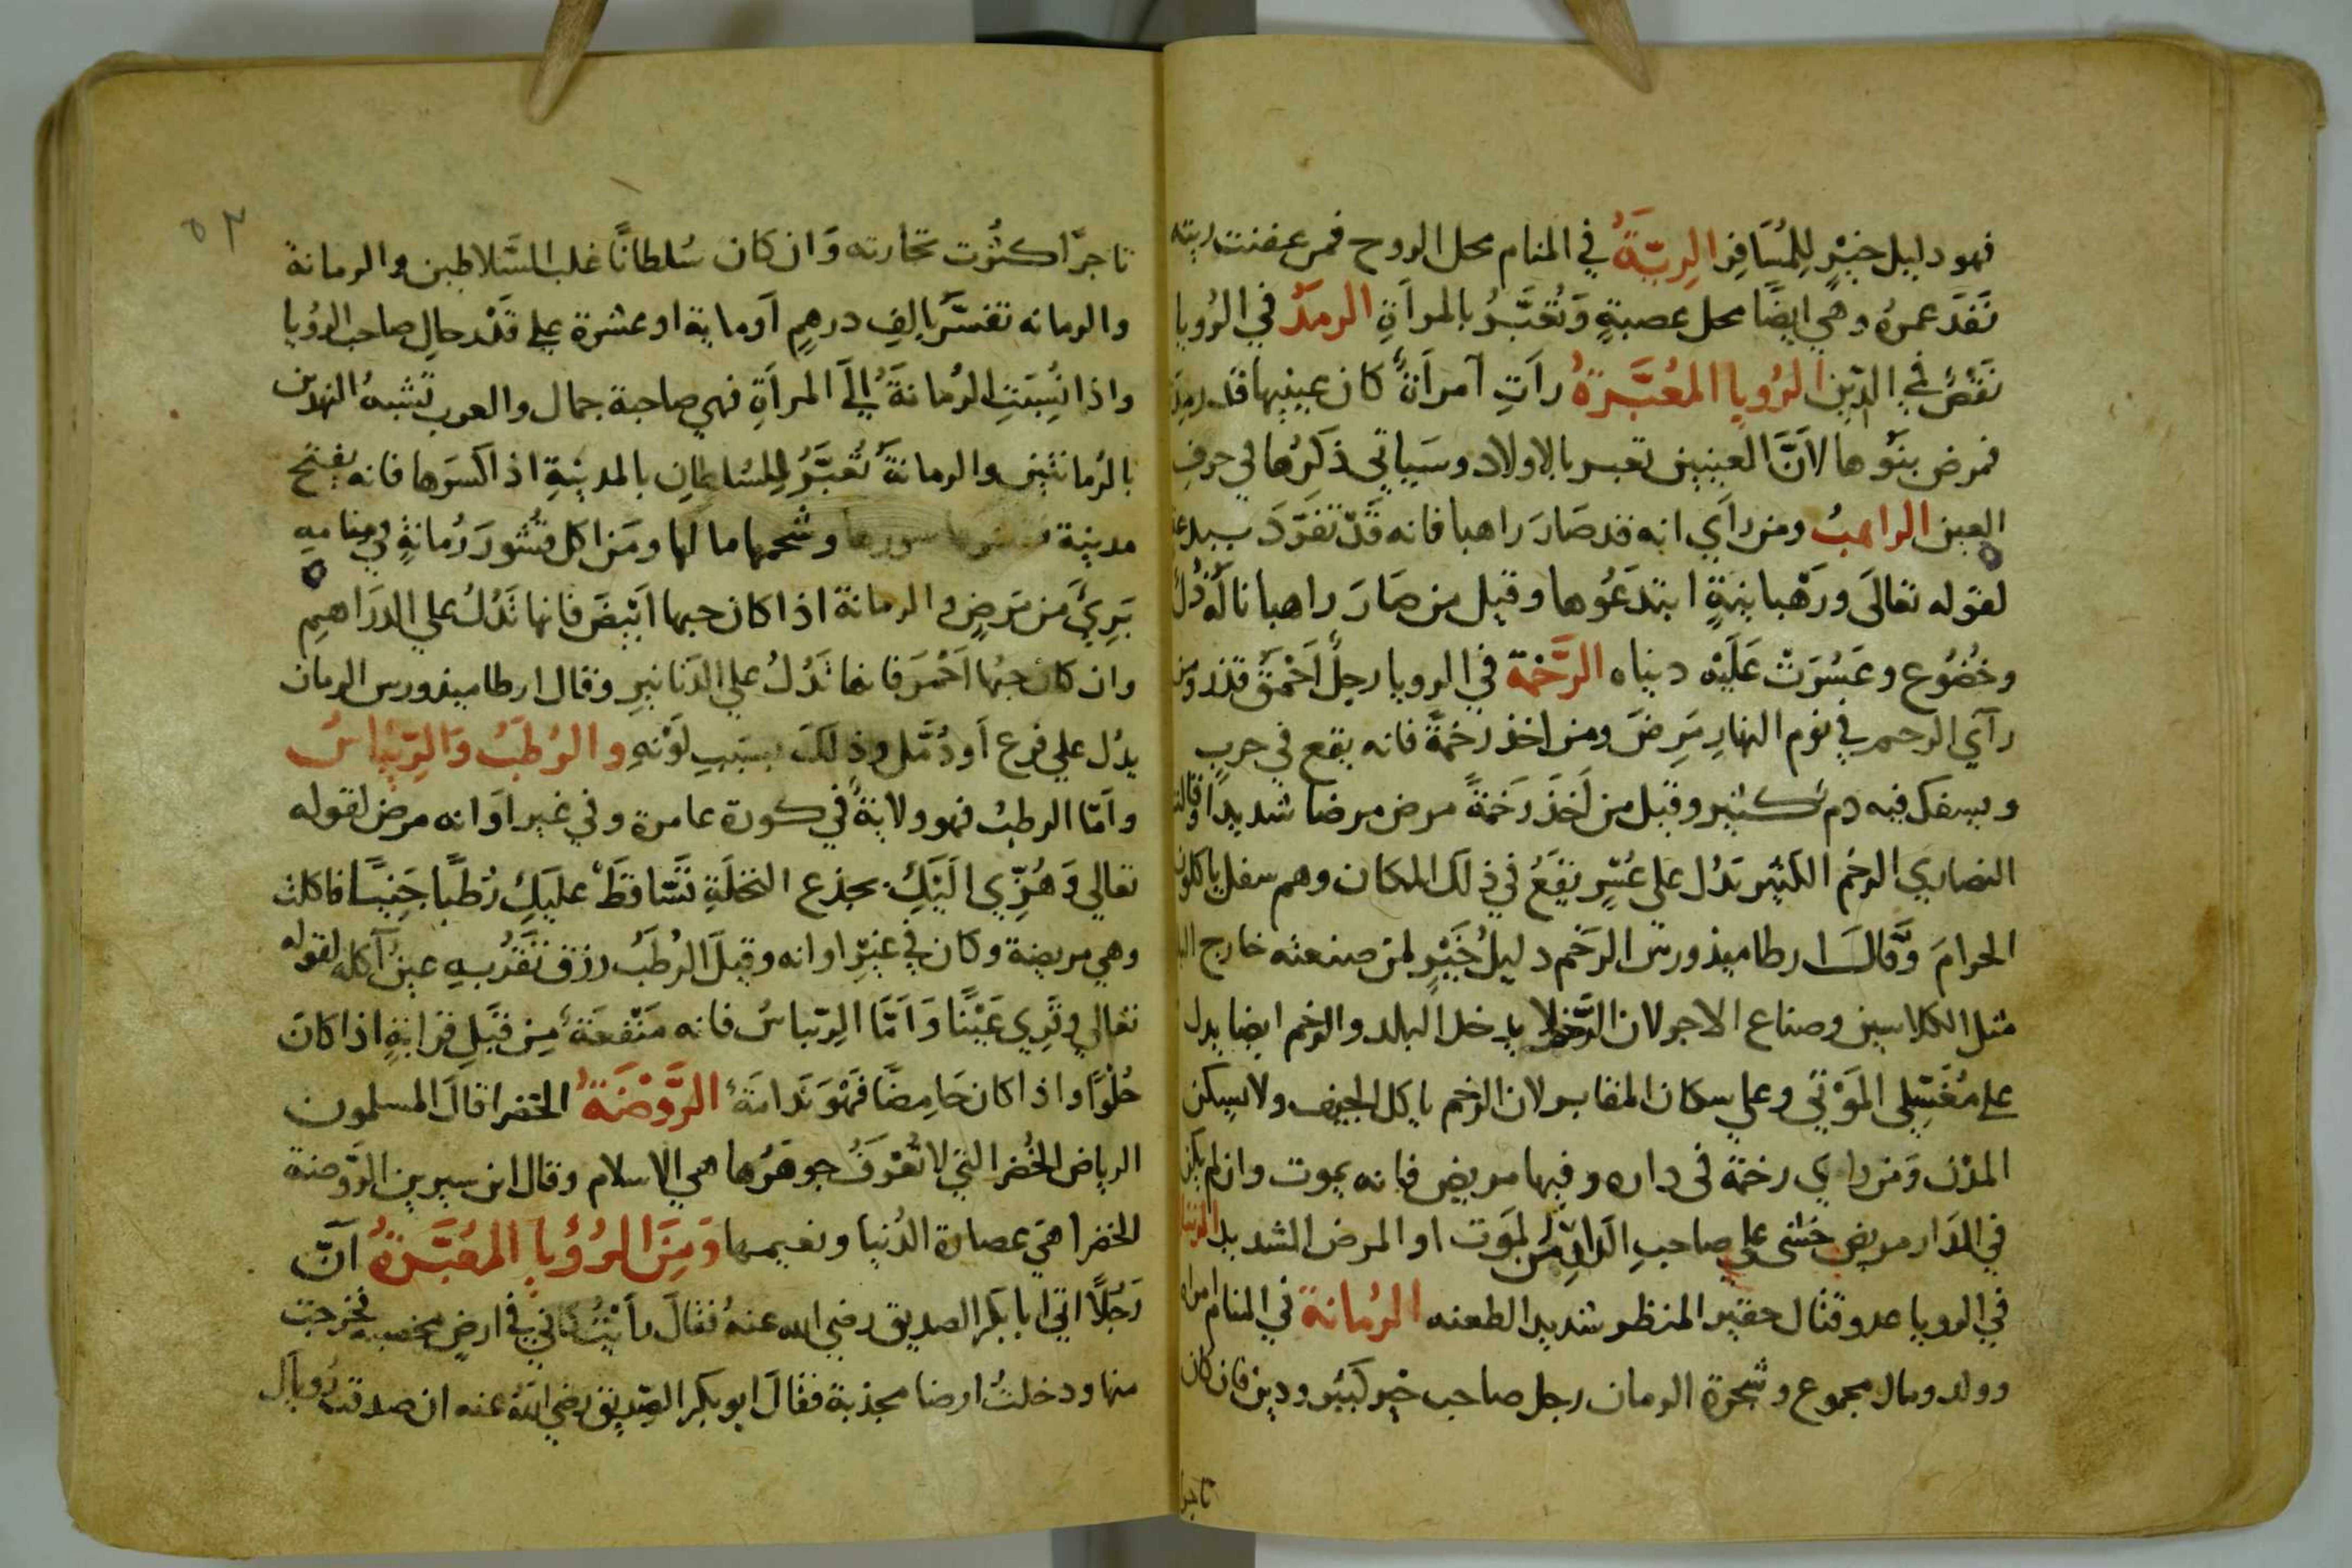 فهو دليل خيرٍ لِلمُسَافِرِ الرِيَّةُ في المنام محل الروح فمن عفنت ريته
نَفَدَ عمرهُ وهي ايضًا محل عصبةٍ وَتُعَبَّرُ بالمرأةِ الرمدُ في الرُويا
نَقْصٌ في الدّين الرُويا المُعَبَّرَةُ رأتِ آمرأةٌ كان عينيها قد رمدت
فمرض بنَوها لأنَّ العينين تعبر بالاولاد وسَيأتي ذكرُها في حرف
العين الراهبُ ومن رأي انه قد صَارَ راهبا فانه قَدْ تفَرّدَ ببدعة
لقوله تعالَى ورَهْبانيةٍ ابتدَعُوها وقيل من صَارَ راهبا نالَهُ ذُل
وخُضُوع وعَسُرَتْ عَلَيْه دنياه الرَّخمة في الرويا رجلٌ اَحْمَق قذر ومن
رآي الرخم في نوم النهارِ مَرِضَ ومن اخذ رَخمَةً فانه يقع في حربٍ
ويسفك فيه دم كثير وقيل من أَخَذَ رَخمَةً مرض مرضا شديدًا وقالت
النصاري الرخُم الكثير تدُل على عُسْرٍ يقعُ في ذلَك المكان وهم سفل ياكلون
الحرامَ وَقَالَ ارطاميذورس الرَخم دليلُ خَيْرٍ لمن صنعته خارج البلد
مثل الكلاسين وصناع الاجر لان الرَّخم لا يدخل البلد والرخم ايضا يدل
على مُغَسِّلي المَوْتي وعلي سكان المقابر لان الرخم ياكل الجيف ولا يسكن
المدُن وَمَن رأي رخمة في داره وفيها مريض فانه يموت وان لم يكن
في الدَار مريض خشى على صاحبِ الدارِ من لموَت او المرض الشديد الرتيلا
في الرويا عدو قتال حقير المنظر شديد الطعنه الرُمانة في المنام امراة
وولد ومال مجموع وشجرة الرمان رجل صاحب خير كبير ودين فان كان
تاجرا
٥٢
تاجرًا كثُرت تجارته وَان كان سُلطانًا غلب السَّلاطين والرمانة
والرمانه تفسَّر بالفِ درهمٍ أوماية او عشرة على قَدْر حالِ صاحب الرؤيا
واذا نُسِبَتِ الرُمانةُ إلَى المرأةِ فهي صاحبة جمال والعرب تشبهُ النهدين
بالرُمانتين والرمانةُ تُعَبَّرُ لِلسُلطانِ بالمدينةِ اذا كسَرها فانه يفتح
مدينة سورها وشحمها مالها ومَن اكل قُشُورَ رُمانةٍ في منامهِ
بَرِيَ من مَرضٍ والرمانة اذا كان حبها ابْيَضَ فانها تَدُلُ علي الدَرَاهيم
وان كان حبُها اَحْمَر فانها تَدُلُ علي الدَنانيرِ وقال ارطاميذورس الرمان
يدُل علي فزع أو دُمَّل وذلكَ بسبَبِ لَوْنهِ والرُطَبُ وَالرِيْباسُ
واَمّا الرطب فهو ولايةٌ في كورة عامرة وفي غير اوَانه مرض لقوله
تعالي وَهُزِّي الَيْكِ بجذع النخلَةِ تَسَّاقَطْ عليَكِ رُطَبًا جَنِيًّا فاكلت
وهي مريضة وكان في غيرِ اوانه وقيلَ الرُطَبُ رزق تَقَرُ بهِ عين آكله لقوله
تعالي وقَرِي عَيْنًا وَأَمَّا الرِيباسُ فانه مَنْفعَةٌ مِن قِبَلِ قرابةٍ اذا كان
حُلْوًا واذا كان حَامِضًا فَهْوَ نَدامَةٌ الرَّوْضَةُ الخضرا قالَ المسلمون
الرياض الخُضر التي لا تُعْرَفُ جوهَرُها هي الاسلام وقال ابن سيرين الرّوضة
الخضرا هيَ عصارة الدُنيا ونعيمها وَمِنَ الرُؤيا المُعَبَّرةُ آنّ
رَجُلًا اتي ابا بَكر الصديق رضي الله عنهُ فقالَ رأيْتُ كاني في ارضٍ مخصبه فخرجت
منها ودخلتُ ارضا مجذبة فقالَ ابو بكر الصِديق رضي اللهُ عنه ان صدقت رُوياك